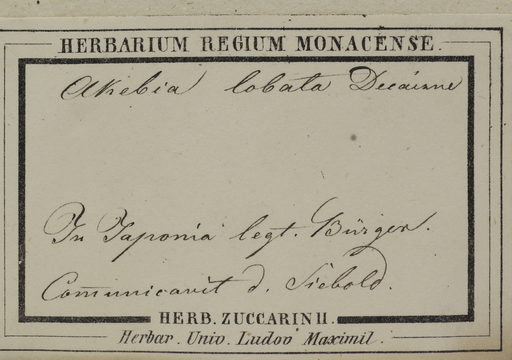 HERBARIUM REGIUM MONACENSE.
Akebia lobata Decaisne
In Japonia legt. Bürger.
Communicavit d. Siebold.
HERB. ZUCCARINII.
Herbar. Univ. Ludov Maximil.